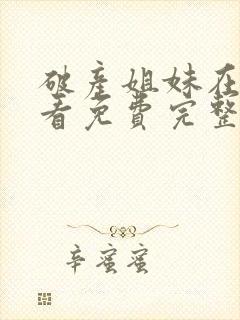 破产姐妹在
看免费完整
辛蜜蜜